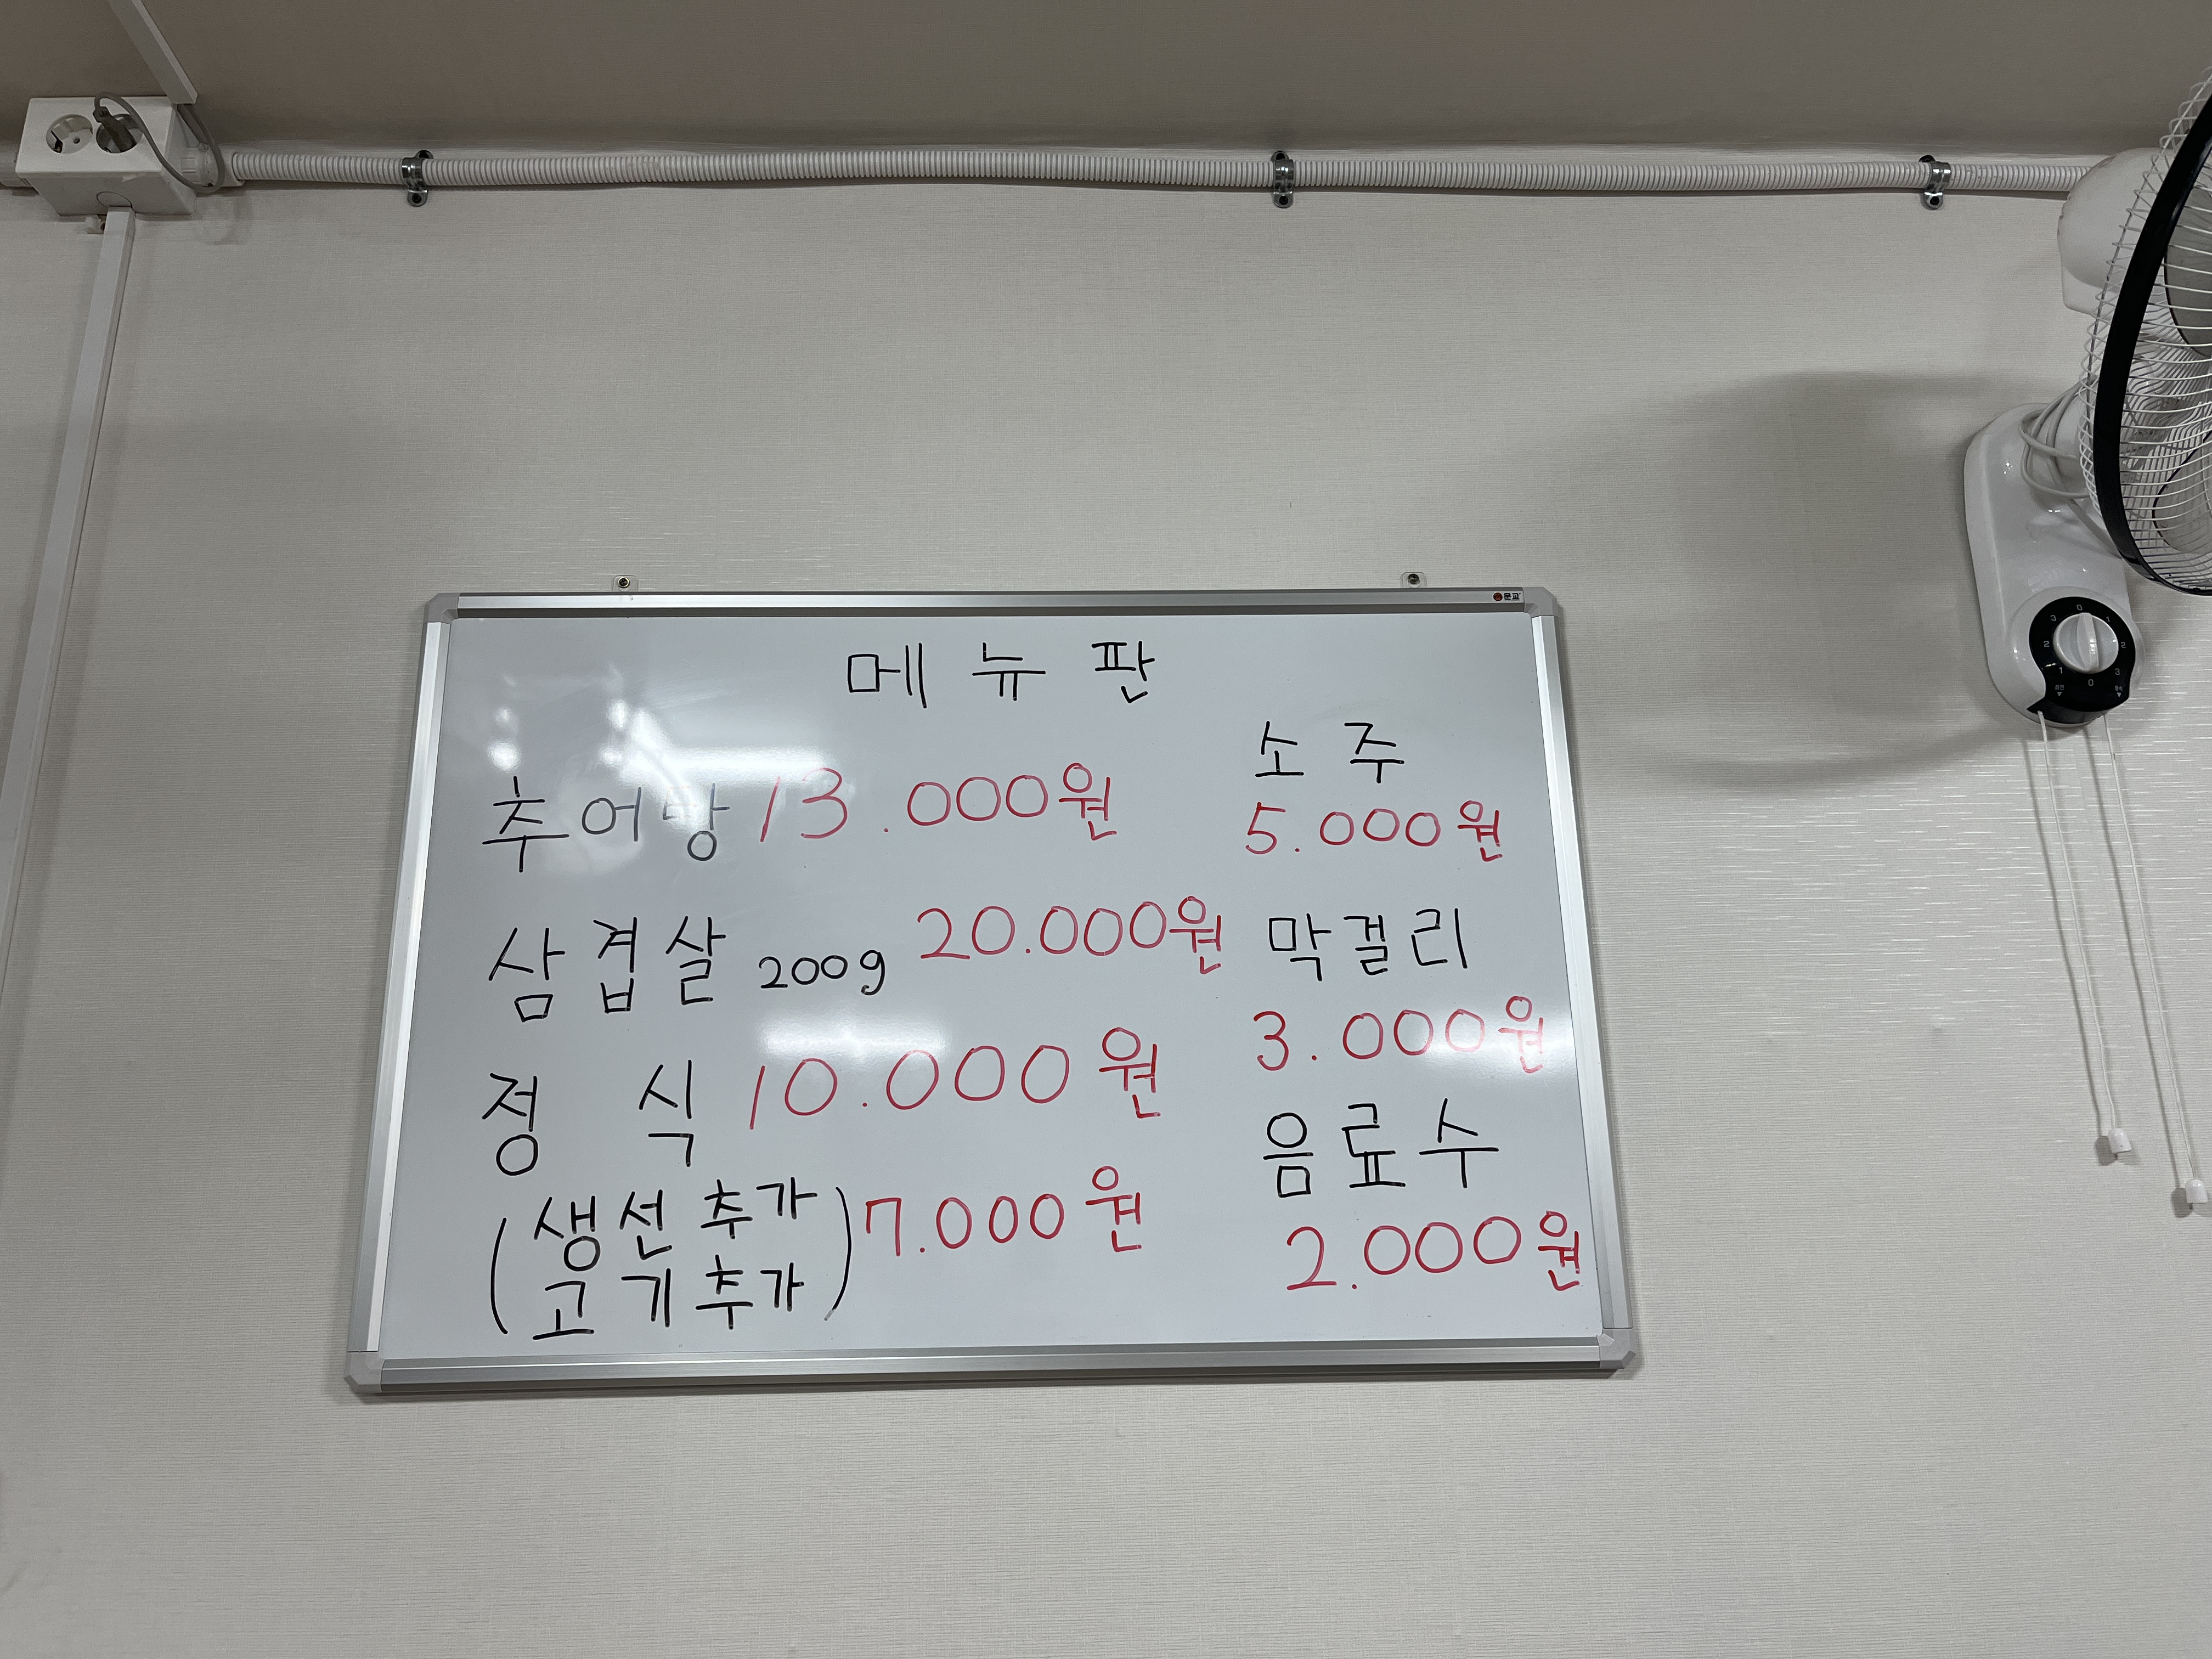 문교
메뉴판
추어탕 13.000원
삼겹살 200g 20.000원
정식 10.000원
(생선추가
고기추가) 7.000원
소주
5.000원
막걸리
3.000원
음료수
2.000원
3 0 1
2 2
1 0 3